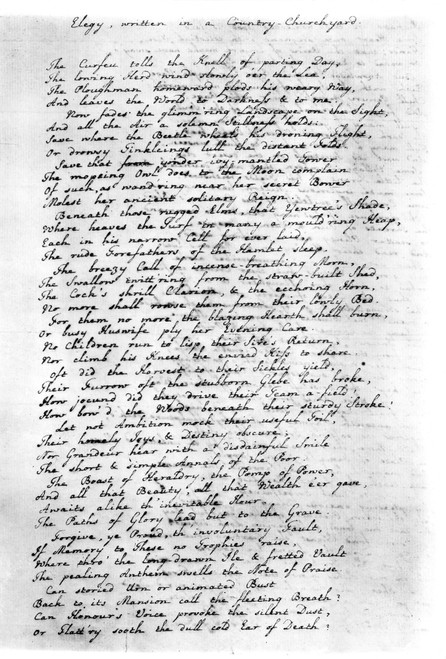 Elegy, written in a Country Churchyard.
The Curfeu tolls the Knell of parting Day,
The lowing Herd wind slowly o'er the Lea,
The Ploughman homeward plods his weary Way,
And leaves the World to Darkness & to me.
Now fades the glimm'ring Landscape on the Sight,
And all the Air a solemn Stillness holds;
Save where the Beetle wheels his droning Flight,
Or drowsy Tinkleings lull the distant Folds.
Save that from yonder ivy-mantled Tower
The mopeing Owl does to the Moon complain
Of such, as wand'ring near her secret Bower
Molest her ancient solitary Reign.
Beneath those rugged Elms, that Yewtree's Shade,
Where heaves the Turf in many a mould'ring Heap,
Each in his narrow Cell for ever laid,
The rude Forefathers of the Hamlet sleep.
The breezy Call of incense-breathing Morn,
The Swallow twitt'ring from the straw-built Shed,
The Cock's shrill Clarion, & the ecchoing Horn,
No more shall rouse them from their lowly Bed.
For them no more the blazing Hearth shall burn,
Or busy Huswife ply her Evening Care:
No Children run to lisp their Sire's Return,
Nor climb his Knees the envied Kiss to share.
Oft did the Harvest to their Sickle yield,
Their Furrow oft the stubborn Glebe has broke,
How jocund did they drive their Team a-field!
How bow'd the Woods beneath their sturdy Stroke!
Let not Ambition mock their useful Toil,
Their homely Joys, & Destiny obscure;
Nor Grandeur hear with a disdainful Smile
The short & simple Annals of the Poor.
The Boast of Heraldry, the Pomp of Power,
And all that Beauty, all that Wealth e'er gave,
Awaits alike th' inevitable Hour.
The Paths of Glory lead but to the Grave.
Forgive, ye Proud, th' involuntary Fault,
If Memory to These no Trophies raise,
Where thro' the long-drawn Ile & fretted Vault
The pealing Anthem swells the Note of Praise.
Can storied Urn or animated Bust
Back to its Mansion call the fleeting Breath?
Can Honour's Voice provoke the silent Dust,
Or Flatt'ry sooth the dull cold Ear of Death?